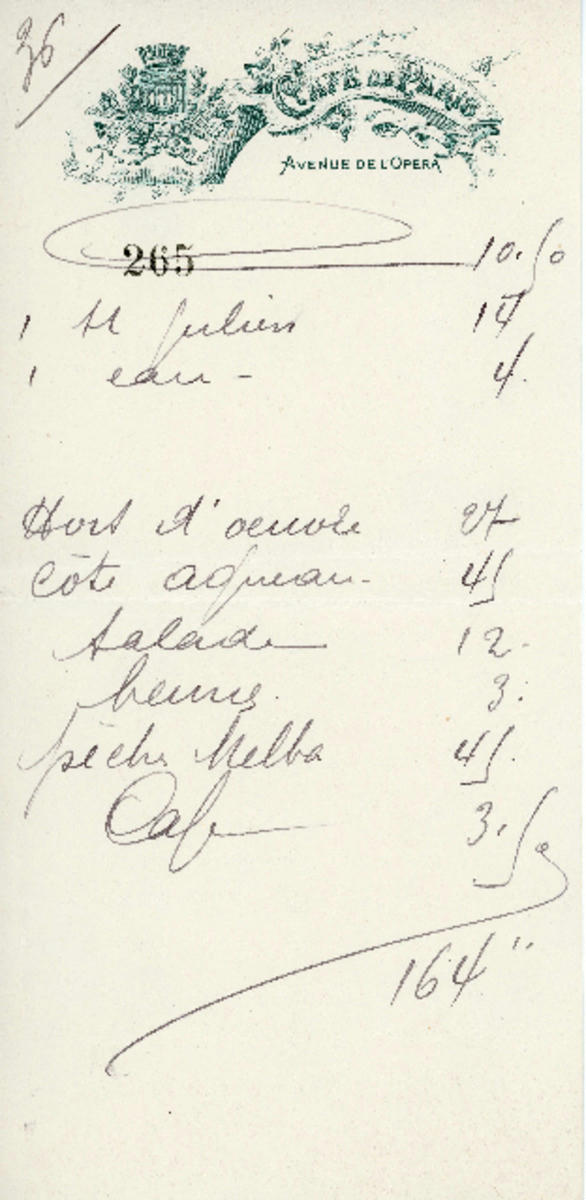 36
CAFÉ DE PARIS
AVENUE DE L'OPERA
265 10.50
1 St Julien 14
1 eau - 4.
Hors d'oeuvre 27
Côte agneau - 45
Salade 12.
beurre. 3.
pêche Melba 45.
Café 3.50
164"